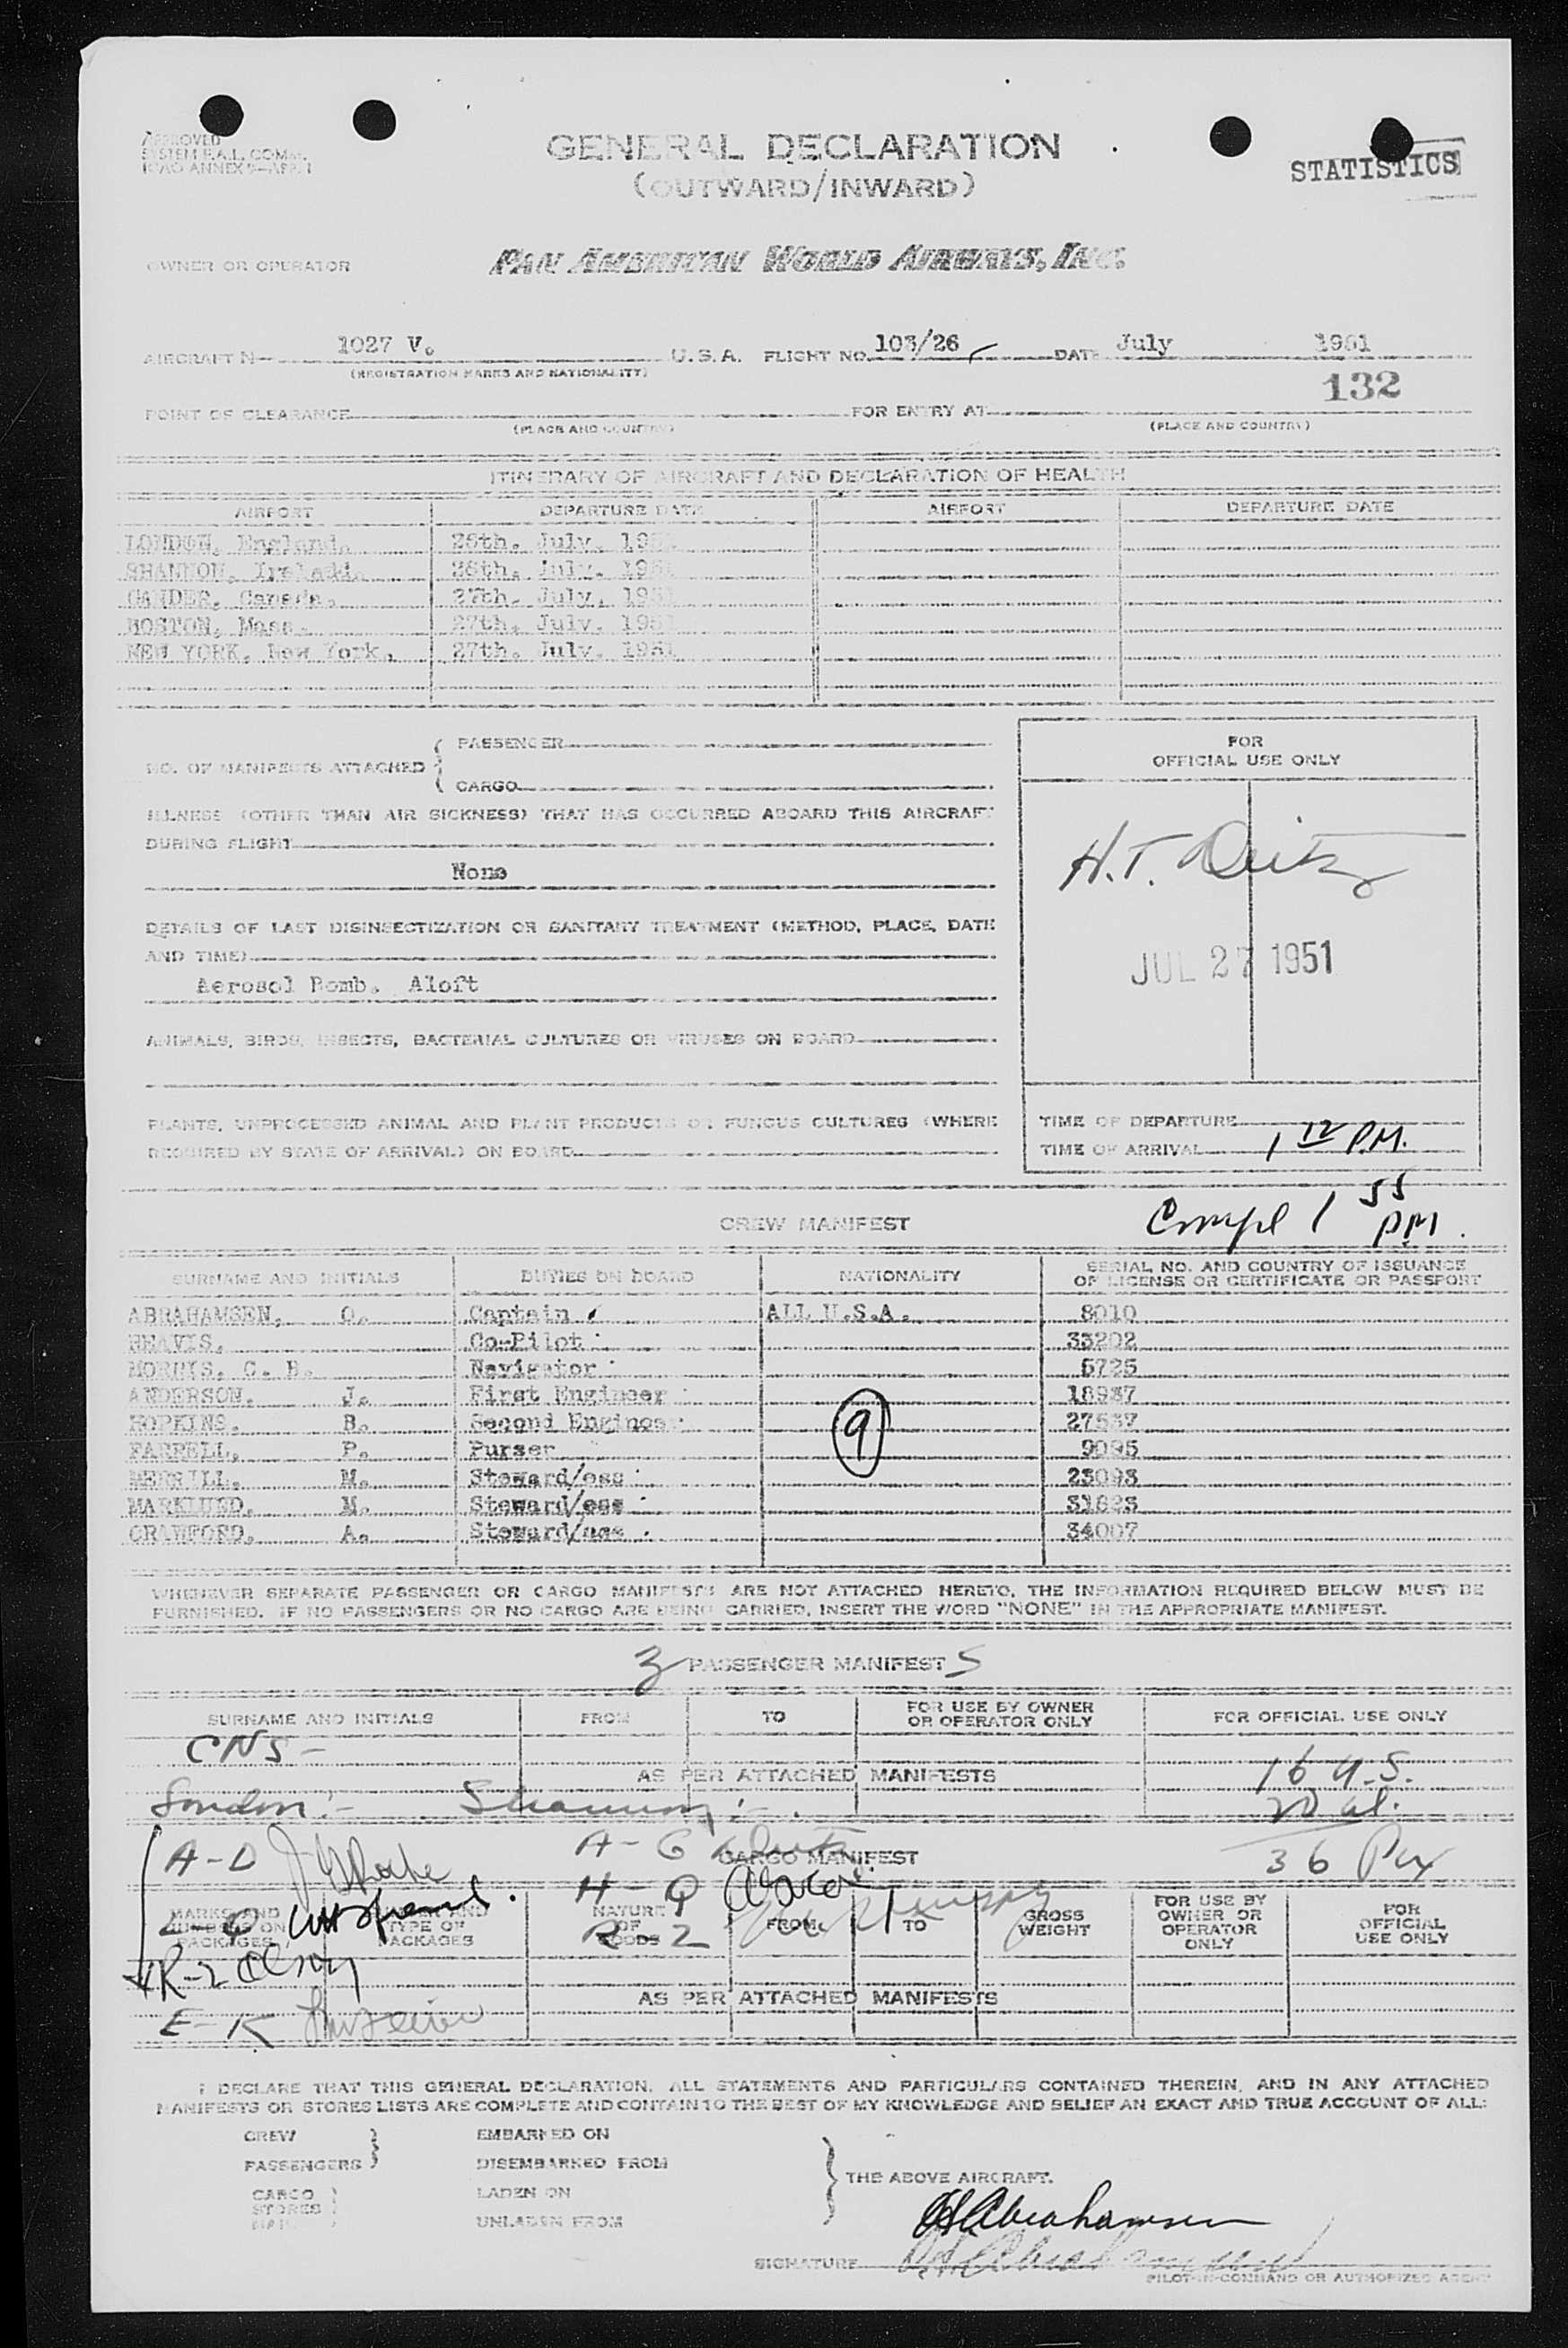 APPROVED
SYSTEM F.A.L. COMM.
ICAO ANNEX 9—APP. 1
GENERAL DECLARATION
(OUTWARD/INWARD)
STATISTICS
OWNER OR OPERATOR PAN AMERICAN WORLD AIRWAYS, INC.
AIRCRAFT N— 1027 V. U.S.A. FLIGHT NO. 103/26 DATE July 1951
(REGISTRATION MARKS AND NATIONALITY)
132
POINT OF CLEARANCE FOR ENTRY AT
(PLACE AND COUNTRY) (PLACE AND COUNTRY)
ITINERARY OF AIRCRAFT AND DECLARATION OF HEALTH
AIRPORT DEPARTURE DATE AIRPORT DEPARTURE DATE
LONDON, England. 26th. July. 1951
SHANNON, Ireland. 26th. July. 1951
GANDER, Canada. 27th. July. 1951
BOSTON, Mass. 27th. July. 1951
NEW YORK, New York. 27th. July. 1951
NO. OF MANIFESTS ATTACHED { PASSENGER
CARGO
ILLNESS (OTHER THAN AIR SICKNESS) THAT HAS OCCURRED ABOARD THIS AIRCRAFT
DURING FLIGHT
None
DETAILS OF LAST DISINSECTIZATION OR SANITARY TREATMENT (METHOD, PLACE, DATE
AND TIME)
Aerosol Bomb. Aloft
ANIMALS, BIRDS, INSECTS, BACTERIAL CULTURES OR VIRUSES ON BOARD
PLANTS, UNPROCESSED ANIMAL AND PLANT PRODUCTS OR FUNGUS CULTURES (WHERE
REQUIRED BY STATE OF ARRIVAL) ON BOARD
FOR
OFFICIAL USE ONLY
H.T. Deitz
JUL 27 1951
TIME OF DEPARTURE
TIME OF ARRIVAL 1 12 P.M.
Compl 1 55 PM.
CREW MANIFEST
SURNAME AND INITIALS DUTIES ON BOARD NATIONALITY SERIAL NO. AND COUNTRY OF ISSUANCE
OF LICENSE OR CERTIFICATE OR PASSPORT
ABRAHAMSEN, O. Captain ALL U.S.A. 8010
HEAVIS, Co-Pilot 33202
MORRIS, C. B. Navigator 5725
ANDERSON, J. First Engineer 18937
HOPKINS, B. Second Engineer 27537
FARRELL, P. Purser 9095
MERRILL, M. Steward/ess 23093
MARKLUND, M. Steward/ess 31823
CRAWFORD, A. Steward/ess 34007
9
WHENEVER SEPARATE PASSENGER OR CARGO MANIFESTS ARE NOT ATTACHED HERETO, THE INFORMATION REQUIRED BELOW MUST BE
FURNISHED. IF NO PASSENGERS OR NO CARGO ARE BEING CARRIED, INSERT THE WORD "NONE" IN THE APPROPRIATE MANIFEST.
3 PASSENGER MANIFEST S
SURNAME AND INITIALS FROM TO FOR USE BY OWNER
OR OPERATOR ONLY FOR OFFICIAL USE ONLY
CNS -
AS PER ATTACHED MANIFESTS 16 U.S.
London:- Shannon:- 20 al.
A-D A-G CARGO MANIFEST 36 Pax
H-Q
MARKS AND
NUMBERS ON
PACKAGES
TYPE OF
PACKAGES
NATURE
OF
GOODS
FROM TO GROSS
WEIGHT
FOR USE BY
OWNER OR
OPERATOR
ONLY
FOR
OFFICIAL
USE ONLY
R-Z
R-Z Olson
AS PER ATTACHED MANIFESTS
E-K
I DECLARE THAT THIS GENERAL DECLARATION, ALL STATEMENTS AND PARTICULARS CONTAINED THEREIN, AND IN ANY ATTACHED
MANIFESTS OR STORES LISTS ARE COMPLETE AND CONTAIN TO THE BEST OF MY KNOWLEDGE AND BELIEF AN EXACT AND TRUE ACCOUNT OF ALL:
CREW EMBARKED ON
PASSENGERS DISEMBARKED FROM
THE ABOVE AIRCRAFT.
CARGO LADEN ON
STORES
MAIL UNLADEN FROM
OH Abrahamsen
SIGNATURE O.H. Abrahamsen
PILOT-IN-COMMAND OR AUTHORIZED AGENT